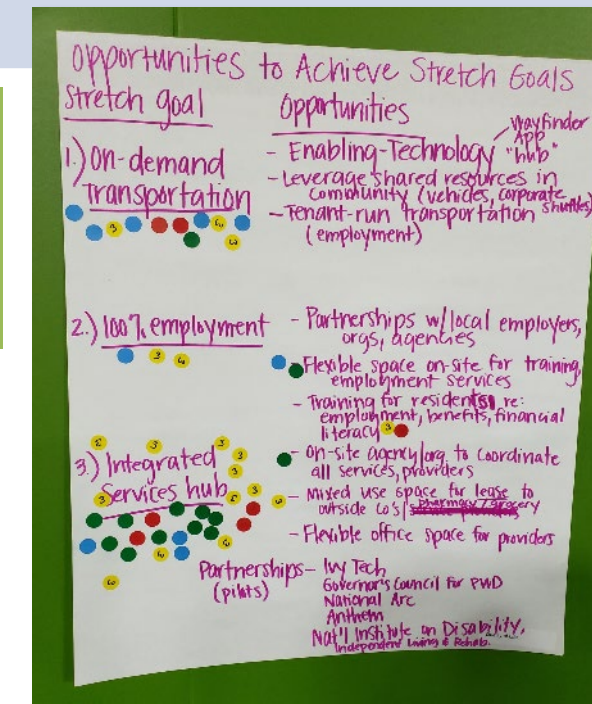 Opportunities to Achieve Stretch Goals
Stretch goal
Opportunities
1.) On-demand
Transportation
- Enabling-Technology
Wayfinder
App
"hub"
- Leverage shared resources in
community (vehicles, corporate
shuttles)
- Tenant-run transportation
(employment)
2.) 100% employment
- Partnerships w/local employers,
orgs, agencies
- Flexible space on-site for training,
employment services
- Training for residents re:
employment, benefits, financial
literacy
3.) Integrated
Services hub
- On-site agency/org to coordinate
all services, providers
- Mixed use space for lease to
outside co's/pharmacy/grocery
- Flexible office space for providers
Partnerships - Ivy Tech
(pilots)
Governor's Council for PWD
National Arc
Anthem
Nat'l Institute on Disability,
Independent Living & Rehab.